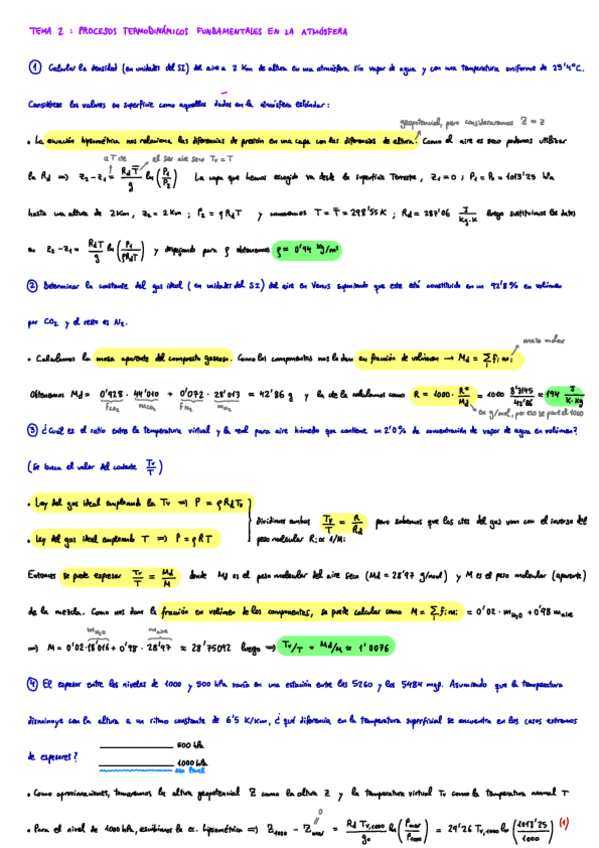 TEMA 2 : PROCESOS TERMODINÁMICOS FUNDAMENTALES EN LA ATMÓSFERA
① Calcular la densidad (en unidades del SI) del aire a 2 Km de altura en una atmósfera sin vapor de agua y con una temperatura uniforme de 25'4°C.
Considérese los valores en superficie como aquellos dados en la atmósfera estándar :
geopotencial, pero consideraremos Z ≈ z
• La ecuación hipsométrica nos relaciona las diferencias de presión en una capa con las diferencias de altura. Como el aire es seco podemos utilizar
a T cte al ser aire seco Tv = T
la Rd ⇒ z₂ - z₁ = Rd T̄ / g ln (P₁/P₂) La capa que hemos escogido va desde la superficie Terrestre, z₁ = 0 ; P₁ = P₀ = 1013'25 hPa
hasta una altura de 2 Km, z₂ = 2 Km ; P₂ = ρ Rd T y conocemos T = T̄ = 298'55 K ; Rd = 287'06 J/Kg·K luego sustituimos los datos
en z₂ - z₁ = Rd T / g ln (P₁/ρRdT) y despejando para ρ obtenemos ρ = 0'94 Kg/m³
② Determinar la constante del gas ideal (en unidades del SI) del aire en Venus suponiendo que este está constituido en un 92'8% en volumen
por CO₂ y el resto es N₂.
masa molar
• Calculamos la masa aparente del compuesto gaseoso. Como los componentes nos lo dan en fracción de volumen → Md = Σ fi mi
Obtenemos Md = 0'928 · 44'010 + 0'072 · 28'013 ≈ 42'86 g y la cte la calculamos como R = 1000 · R*/Md = 1000 8'3145/42'86 = 194 J/K·Kg
fCO₂ mCO₂ fN₂ mN₂ en g/mol, por eso se pone el 1000
③ ¿Cuál es el ratio entre la temperatura virtual y la real para aire húmedo que contiene un 2'0% de concentración de vapor de agua en volumen?
(Se busca el valor del cociente Tv/T)
• Ley del gas ideal empleando la Tv ⇒ P = ρ Rd Tv
Dividimos ambos Tv/T = R/Rd pero sabemos que las ctes del gas van con el inverso del
• Ley del gas ideal empleando T ⇒ P = ρ R T
peso molecular Ri ∝ 1/Mi
Entonces se puede expresar Tv/T = Md/M donde Md es el peso molecular del aire seco (Md = 28'97 g/mol) y M es el peso molecular (aparente)
de la mezcla. Como nos dan la fracción en volumen de los componentes, se puede calcular como M = Σ fi mi = 0'02 · mH₂O + 0'98 maire
mH₂O maire
⇒ M = 0'02 · 18'016 + 0'98 · 28'97 ≈ 28'75092 luego ⇒ Tv/T = Md/M ≈ 1'0076
④ El espesor entre los niveles de 1000 y 500 hPa varía en una estación entre los 5260 y los 5484 mgp. Asumiendo que la temperatura
disminuye con la altura a un ritmo constante de 6'5 K/Km, ¿qué diferencia en la temperatura superficial se encuentra en los casos extremos
de espesores?
500 hPa
1000 hPa
• Como aproximaciones, tomaremos la altura geopotencial Z como la altura z y la temperatura virtual Tv como la temperatura normal T
0
• Para el nivel de 1000 hPa, escribimos la ec. hipsométrica ⇒ Z₁₀₀₀ - Zmar = Rd Tv,1000 / g₀ ln (Pmar/P1000) = 29'26 Tv,1000 ln (1013'25/1000) (1)